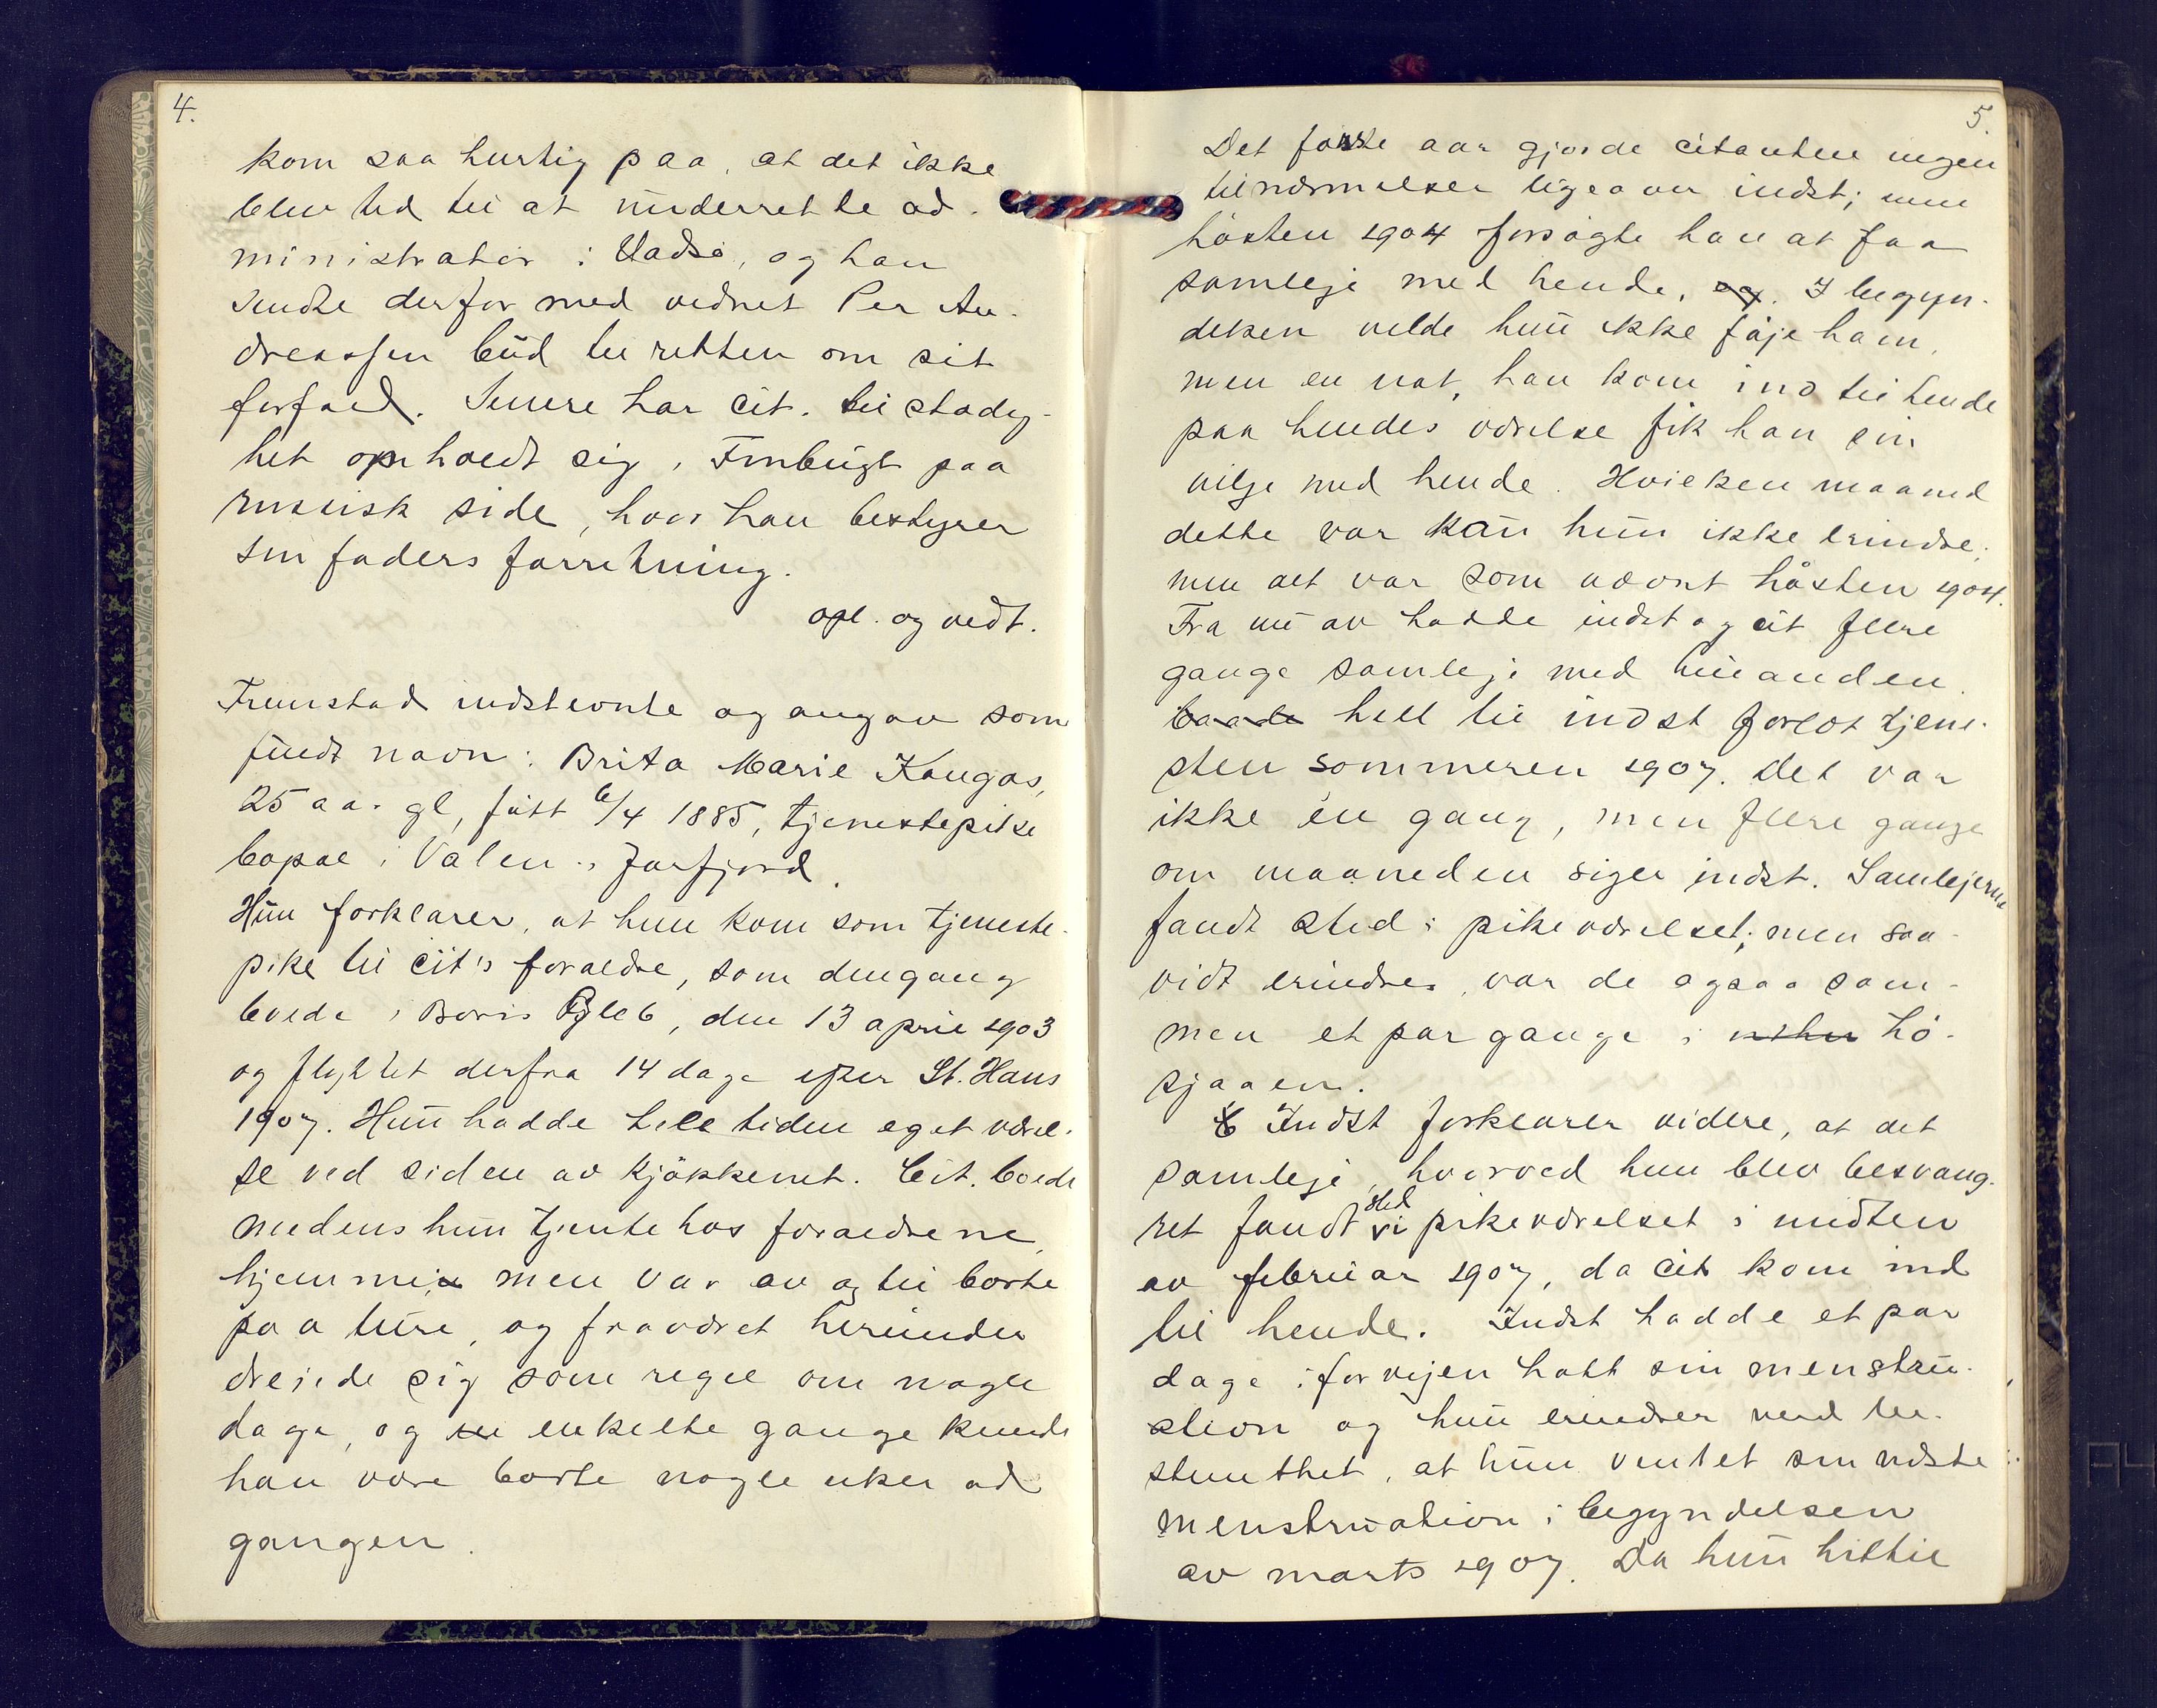 4.
kom saa hurtig paa, at det ikke
blev tid til at underrette ad-
ministrator i Vadsø, og han
sendte derfor med vidnet Per An-
dreassen bud til retten om sit
forfald. Senere har cit. til stadig-
het opholdt sig i Finbugt paa
russisk side, hvor han bestyrer
sin faders forretning.
opl. og vedt.
Fremstod indstevnte og angav som
fuldt navn: Brita Marie Kangas,
25 aar gl, født 6/4 1885, tjenestepike
bopæl i Valen i Jarfjord.
Hun forklarer, at hun kom som tjeneste-
pike til cit's forældre, som dengang
boede i Boris Gleb, den 13 april 1903
og flyttet derfra 14 dage efter St. Hans
1907. Hun hadde hele tiden eget værel-
se ved siden av kjøkkenet. Cit. boede
medens hun tjente hos forældrene,
hjemme, men var av og til borte
paa ture, og fraværet herunder
dreiede sig som regel om nogle
dage, og enkelte gange kunde
han være borte nogle uker ad
gangen.
5.
Det første aar gjorde citanten ingen
tilnærmelser ligeover indst; men
høsten 1904 forsøgte han at faa
samleje med hende, og. I begyn-
delsen vilde hun ikke føje ham,
men en nat, han kom ind til hende
paa hendes værelse fik han sin
vilje med hende. Hvilken maaned
dette var kan hun ikke erindre;
men det var som nævnt høsten 1904.
Fra nu av hadde indst og cit flere
gange samleje med hinanden
baade helt til indst forlot tjene-
sten sommeren 1907. Det var
ikke én gang, men flere gange
om maaneden siger indst. Samlejerne
fandt sted i pikeværelset; men saa-
vidt erindres, var de ogsaa sam-
men et par gange i hø-
sjaaen.
Indst forklarer videre, at det
samleje, hvorved hun blev besvang-
ret fandt sted i pikeværelset i midten
av februar 1907, da cit kom ind
til hende. Indst hadde et par
dage i forvejen hatt sin menstru-
ation og hun erindrer med be-
stemthet, at hun ventet sin næste
menstruation i begyndelsen
av marts 1907. Da hun hittil